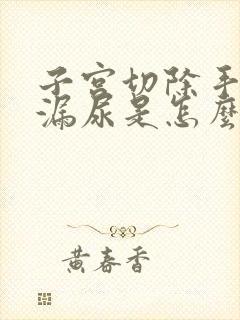 子宫切除手
漏尿是怎麼
黄春香